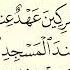 رِكِينَ عَهْدٌ عِن
ندَ ٱلْمَسْجِدِ